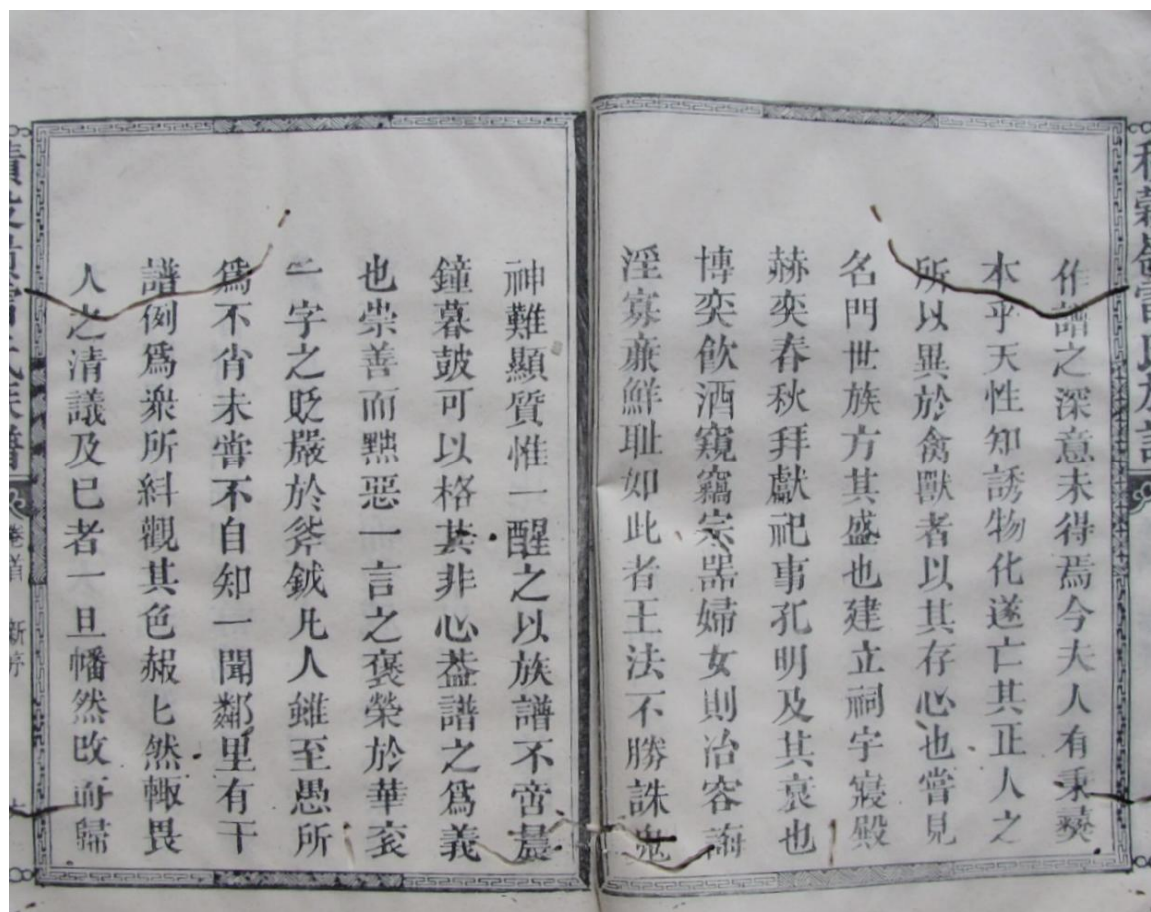 作譜之深意未得焉今夫人有秉彝
本乎天性知誘物化遂亡其正人之
所以異於禽獸者以其存心也嘗見
名門世族方其盛也建立祠宇寢殿
赫奕春秋拜獻祀事孔明及其衰也
博奕飲酒窺竊宗器婦女則冶容誨
淫寡亷鮮耻如此者王法不勝誅鬼
神難顯質惟一醒之以族譜不啻晨
鐘暮鼓可以格其非心葢譜之爲義
也崇善而黜惡一言之褒榮於華衮
一字之貶嚴於斧鉞凡人雖至愚所
爲不肖未嘗不自知一聞鄰里有干
譜例爲衆所糾觀其色赧匕然輙畏
人之清議及已者一旦幡然改而歸
氏族譜
卷首
新序